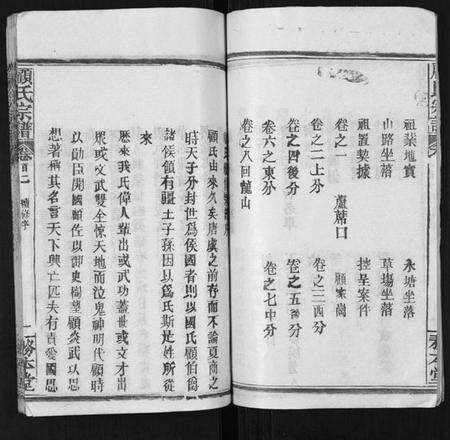 祖塋地實 水塘坐落
山路坐落 草場坐落
祖置契據 控呈案件
卷之一 蘆蓆口 顧家崗
卷之二上分 卷之三四分
卷之四後分 卷之五分
卷六之東分 卷之七中分
卷之八回龍山
務本堂
顧氏由來久矣唐虞之前存而不論夏商之
時天子分封世爲侯國者則以國氏顧伯爵
諸侯領有疆土子孫因以爲氏斯是姓所從
來
歷來我氏偉人輩出或武功蓋世或文才出
眾或文武雙全惊天地而泣鬼神明代顧時
以勛臣開國顧佐以御史樹望顧炎武以思
想著稱其名言天下興亡匹夫有責愛國思
顧氏宗譜 卷首一 補修序 一 務本堂